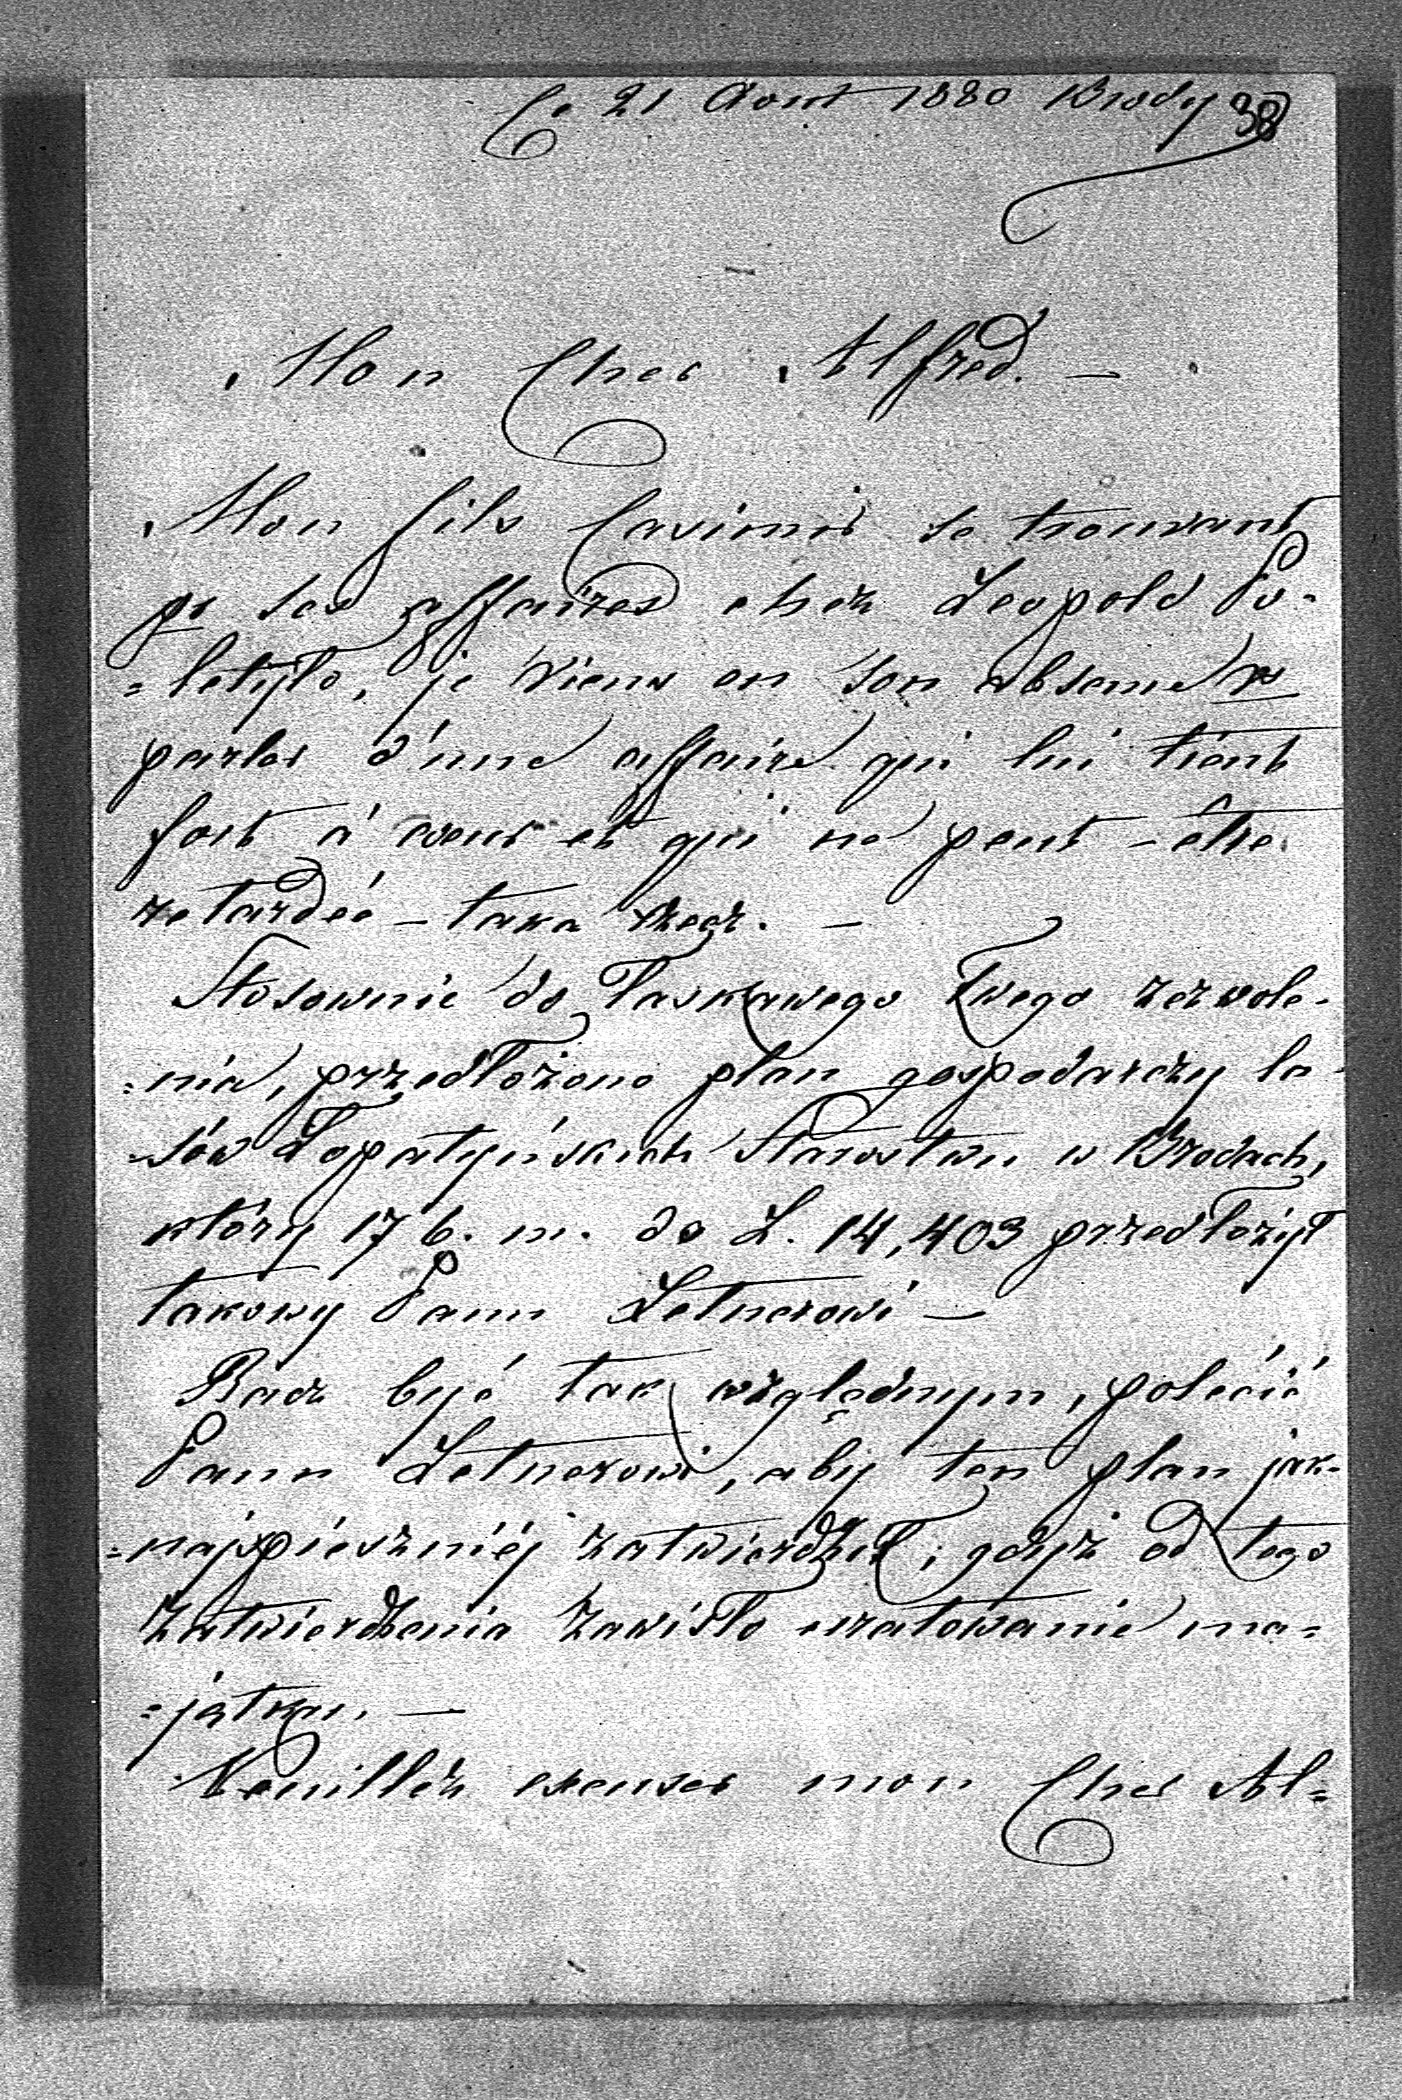 Ce 21 Aout 1880 Brody 38
Mon Cher Alfred. —
Mon fils Casimir se trouvant
pr ses affaires chez Leopold Po-
=letyło, je viens en son absence vs
parler d'une affaire qui lui tient
fort à coeur et qui ne peut-être
retardée — taka rzecz. —
Stosownie do łaskawego Twego zezwole-
=nia, przedłożono plan gospodarczy la-
=sów Łopatyńskich Starostwu w Brodach,
który 17 b. m. do L. 14,403 przedłożył
takowy Panu Letnerowi —
Bacz być tak względnym, polécić
Panu Letnerowi, aby ten plan jak-
=najspieszniéj zatwierdził; gdyż od tego
zatwierdzenia zawisło uratowanie ma=
=jątku. —
Veuillez excuser mon Cher Al=